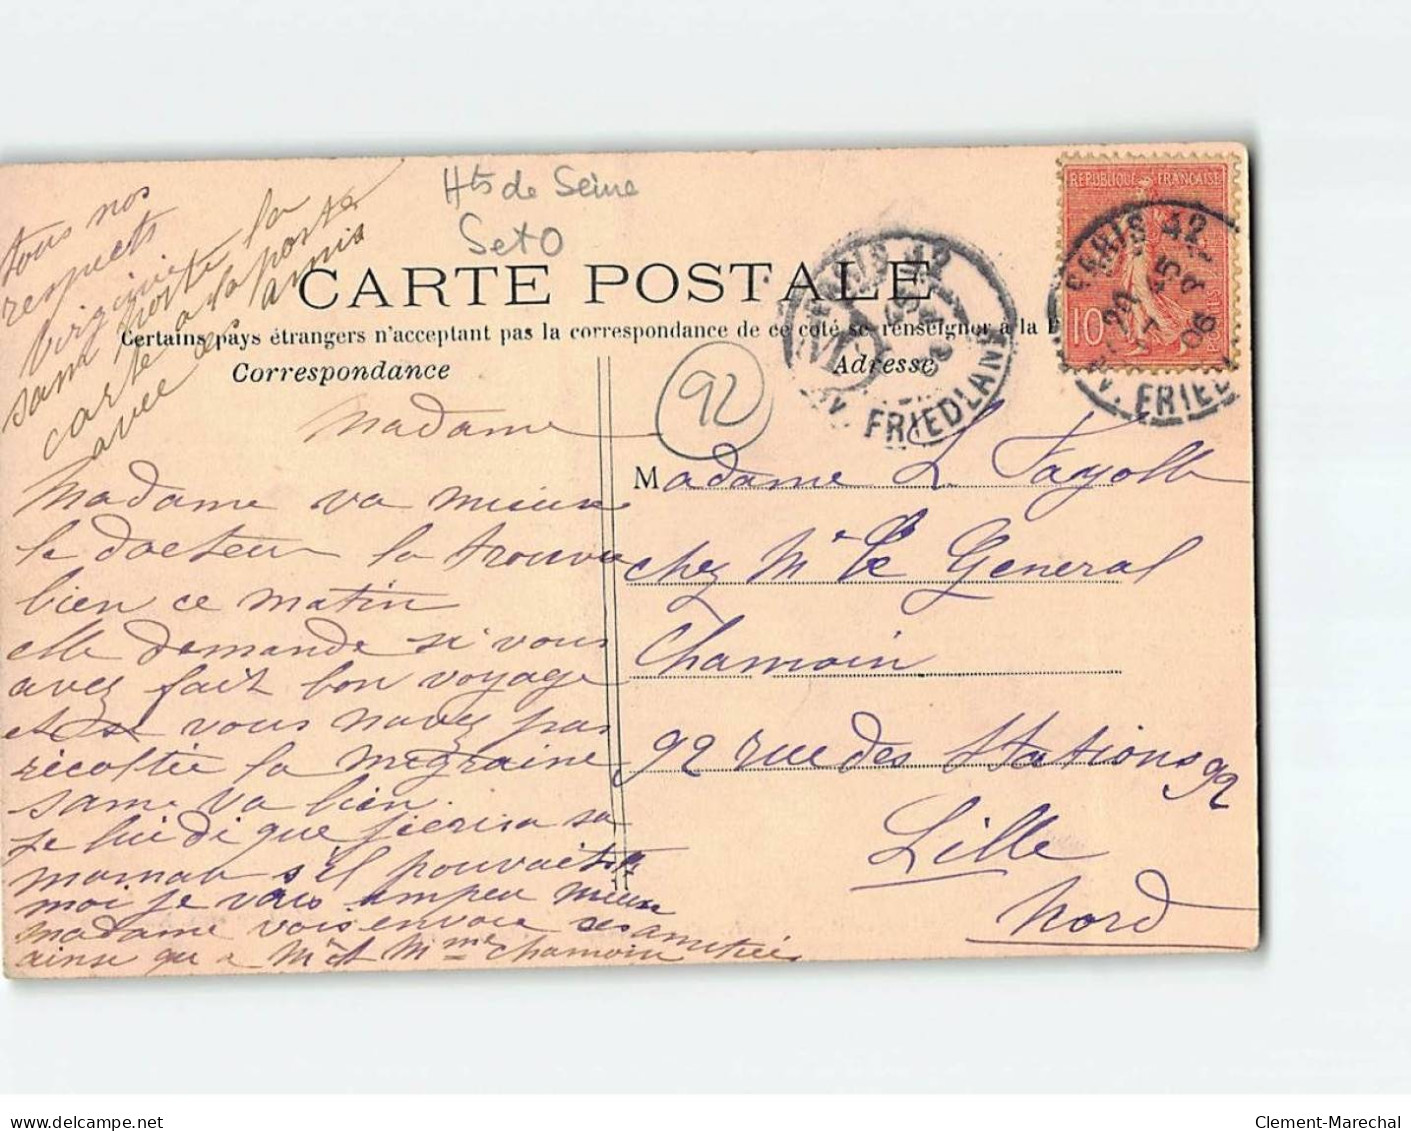 Hts de Seine
Set O
tous nos
respects
virginie
sami porte la
carte a la poste
avec ses amis
CARTE POSTALE
Certains pays étrangers n'acceptant pas la correspondance de ce côté se renseigner à la
Correspondance
Adresse
92
PARIS 42
AV. FRIEDLAND
REPUBLIQUE FRANÇAISE
10
PARIS 42
20
06
AV. FRIEDL
Madame
Madame va mieux
le docteur la trouve
bien ce matin
elle demande si vous
avez fait bon voyage
et si vous navez pas
récoltée la megraine
sami va bien.
je lui di que j'ecris a sa
maman s'il pouvait
moi je vais umpeu mieux
madame vois envoie ses amitiés
ainsi qu a Mr et Mme Chamoin
Madame L Fayolle
chez Mr le General
Chamoin
92 rue des Stations 92
Lille
Nord
www.delcampe.net
Clement-Marechal